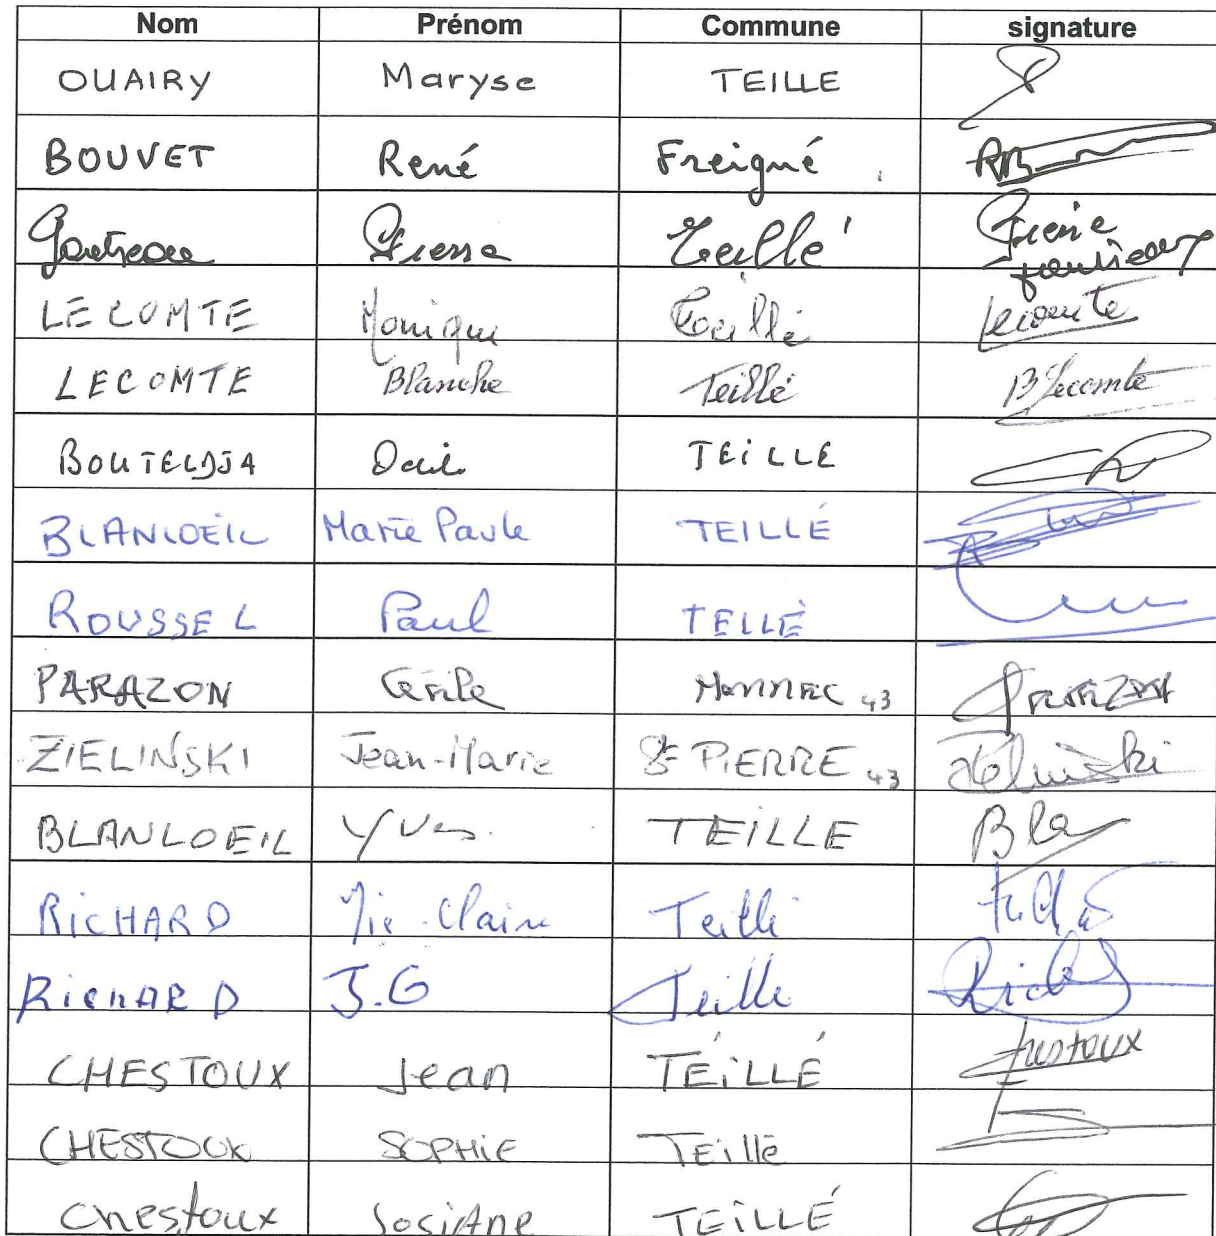 Nom Prénom Commune signature
OUAIRY Maryse TEILLE
BOUVET René Freigné RB
Gautreau Pierre Teillé Pierre Gautreau
LECOMTE Monique Teillé Lecomte
LECOMTE Blanche Teillé B Lecomte
BOUTELDJA TEILLE
BLANLOEIL Marie Paule TEILLÉ
ROUSSEL Paul TEILLÉ
PARAZON Cécile 43 PARAZON
ZIELINSKI Jean-Marie St PIERRE 43 Zielinski
BLANLOEIL Yves TEILLE Bla
RICHARD Mie-Claire Teillé
RICHARD J.G Teillé Rich
CHESTOUX Jean TEILLÉ Chestoux
CHESTOUX SOPHIE TEillé
Chestoux JosiAne TEILLÉ